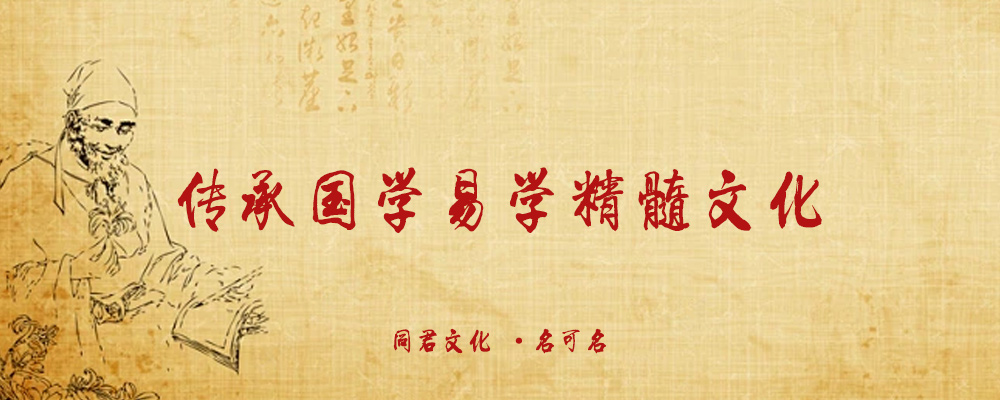 传承国学易学精髓文化
同君文化 · 名可名